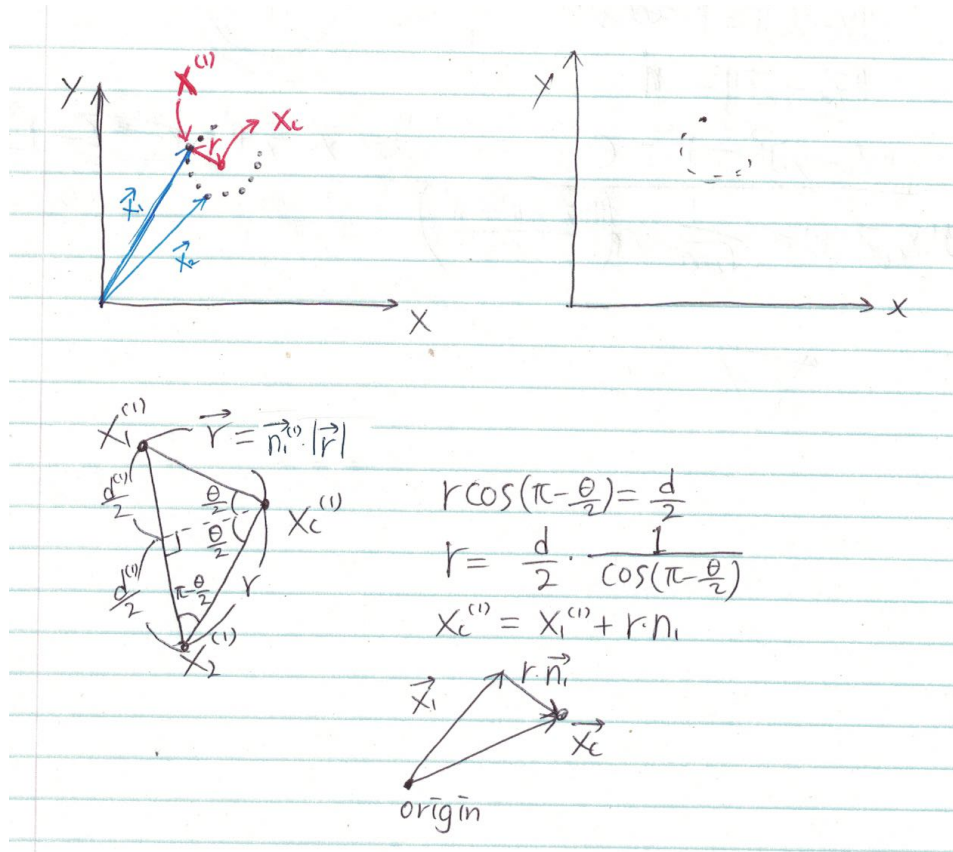 X⁽¹⁾
Y
Xc
r
x⃗₁
x⃗₂
X
Y
X
X₁⁽¹⁾
r⃗ = n⃗₁⁽¹⁾·|r⃗|
d⁽¹⁾/2
θ/2
Xc⁽¹⁾
θ/2
d⁽¹⁾/2
π-θ/2
r
X₂⁽¹⁾
r cos(π-θ/2) = d/2
r = d/2 · 1/cos(π-θ/2)
Xc⁽¹⁾ = X₁⁽¹⁾ + r·n₁
r·n⃗₁
X⃗₁
X⃗c
origin